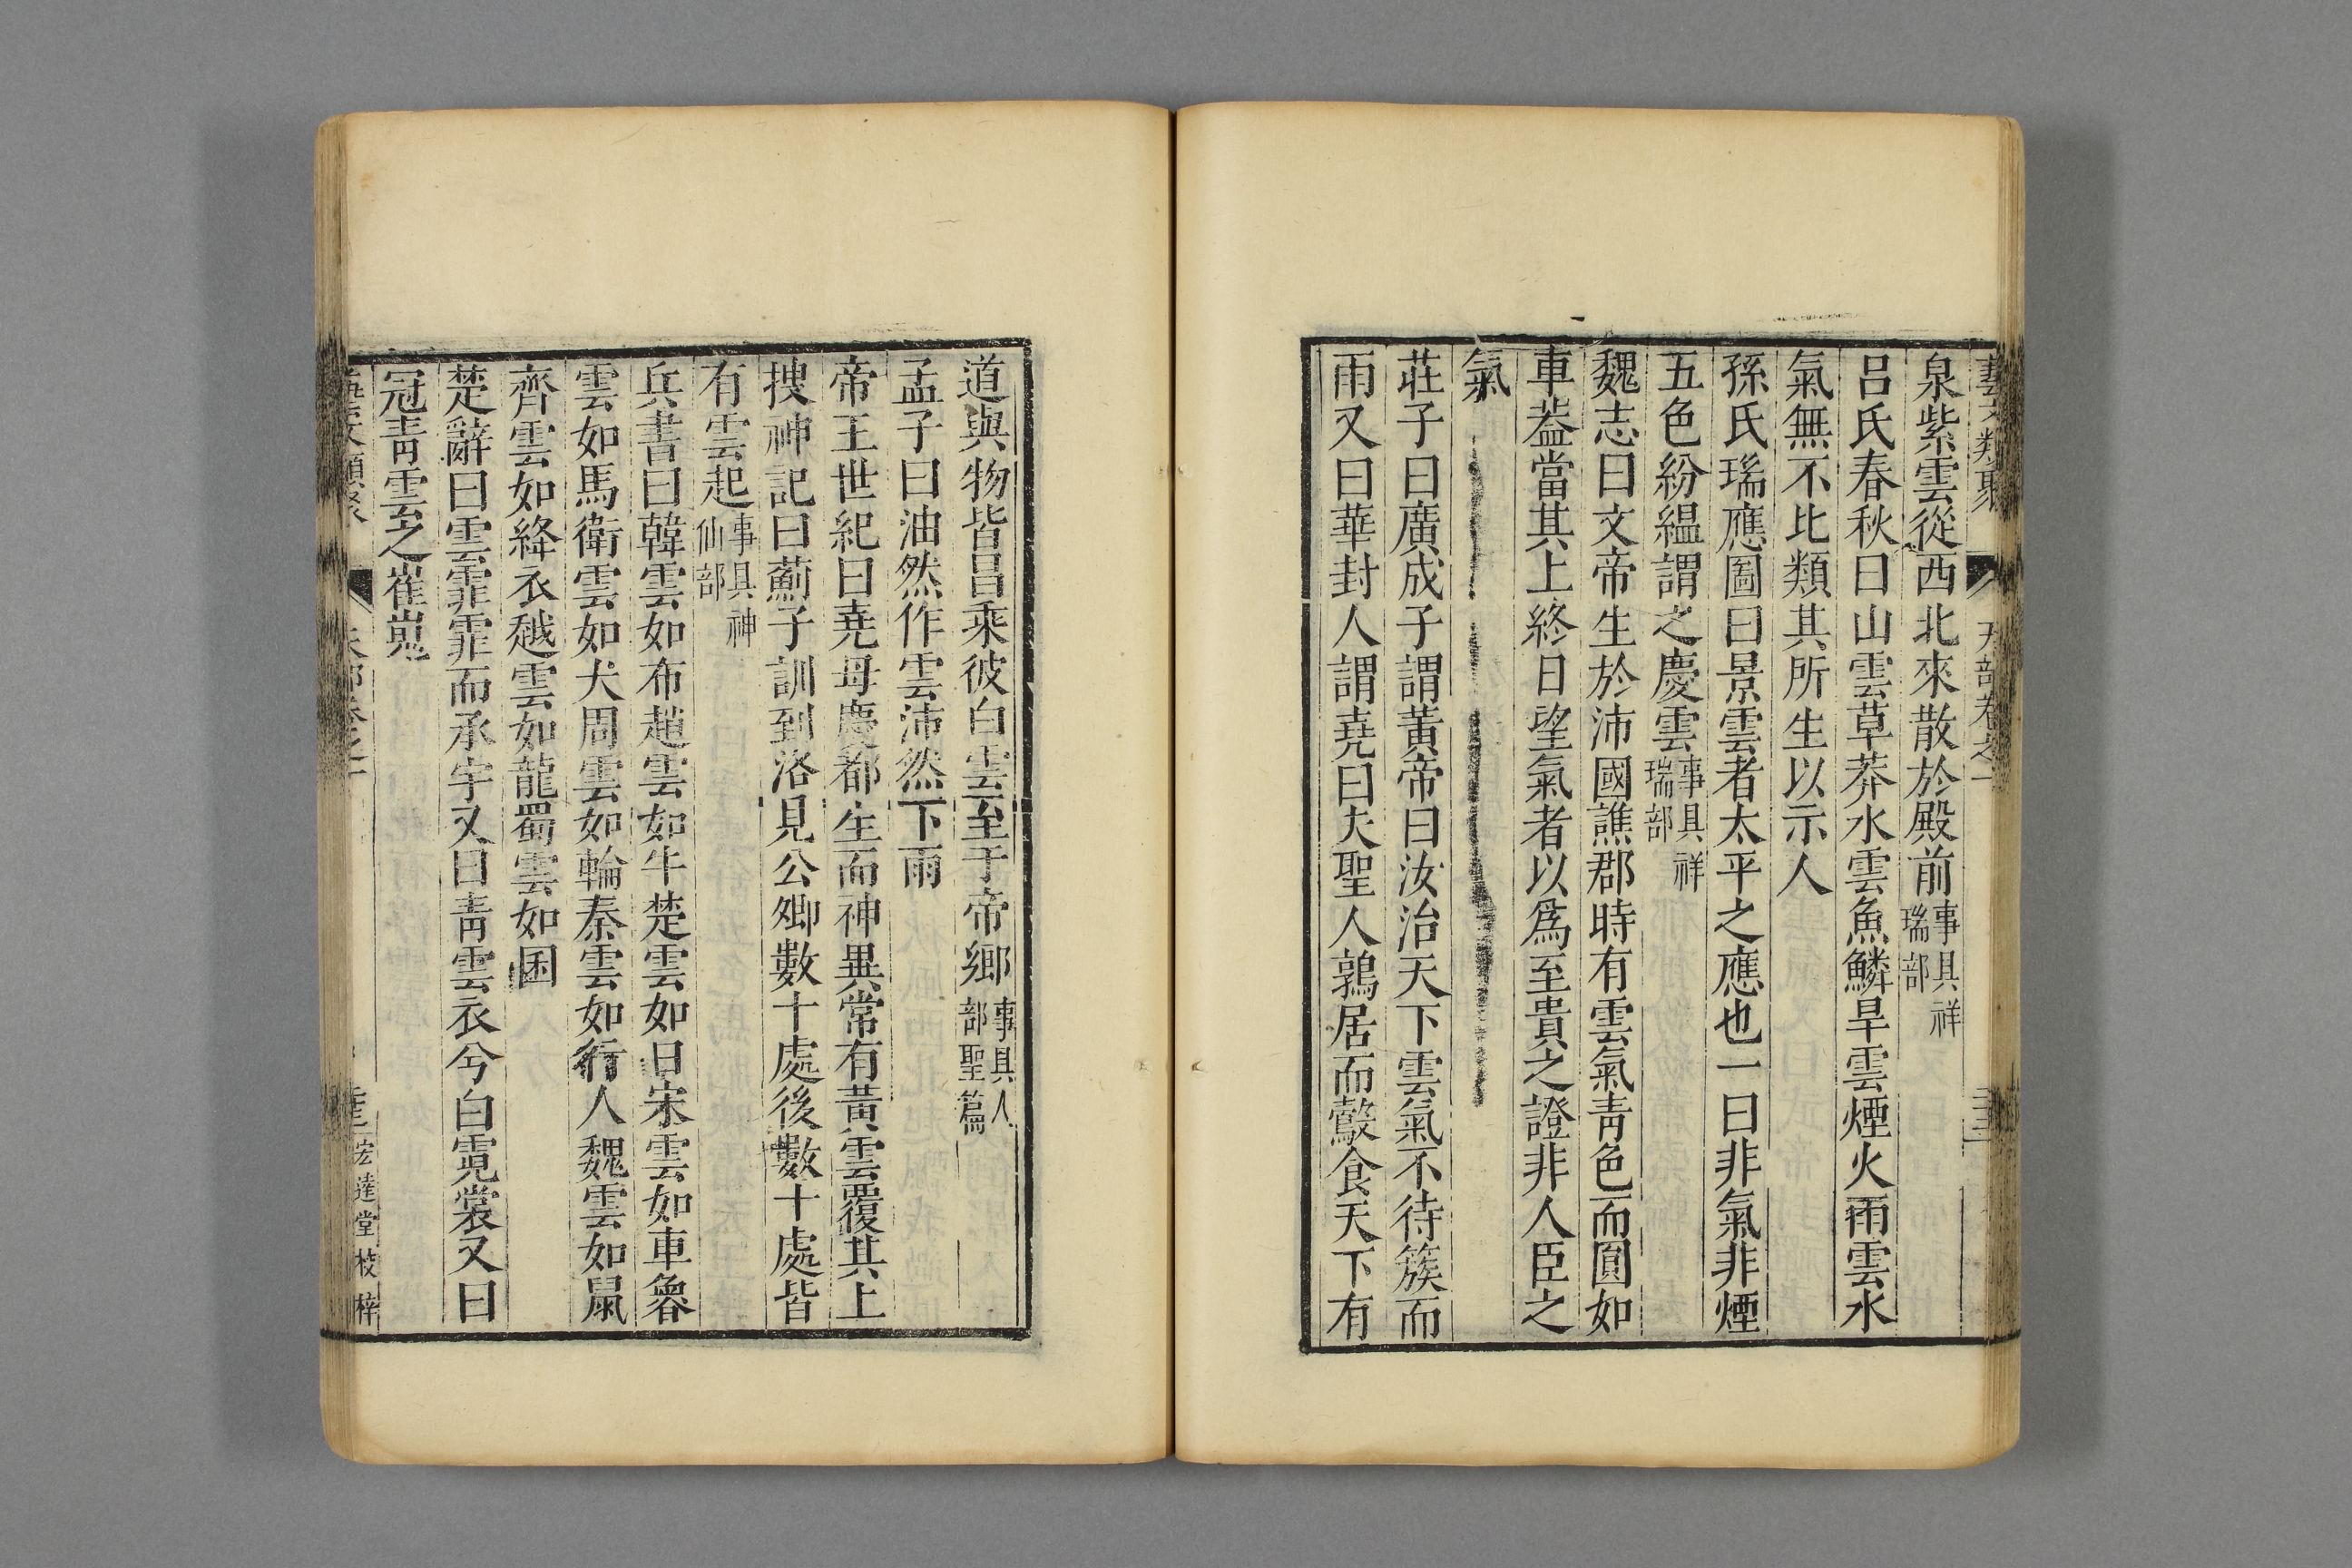 藝文類聚 天部卷之一
泉紫雲從西北來散於殿前事具祥瑞部
呂氏春秋曰山雲草莽水雲魚鱗旱雲煙火雨雲水
氣無不比類其所生以示人
孫氏瑞應圖曰景雲者太平之應也一曰非氣非煙
五色紛縕謂之慶雲事具祥瑞部
魏志曰文帝生於沛國譙郡時有雲氣靑色而圓如
車葢當其上終日望氣者以爲至貴之證非人臣之
氣
莊子曰廣成子謂黃帝曰汝治天下雲氣不待簇而
雨又曰華封人謂堯曰夫聖人鶉居而鷇食天下有
道與物皆昌乘彼白雲至于帝鄉事具人部聖篇
孟子曰油然作雲沛然下雨
帝王世紀曰堯母慶都生而神異常有黃雲覆其上
搜神記曰薊子訓到洛見公卿數十處後數十處皆
有雲起事具神仙部
兵書曰韓雲如布趙雲如牛楚雲如日宋雲如車魯
雲如馬衛雲如犬周雲如輪秦雲如行人魏雲如鼠
齊雲如絳衣越雲如龍蜀雲如囷
楚辭曰雲霏霏而承宇又曰靑雲衣兮白霓裳又曰
冠靑雲之崔嵬
宏達堂校梓